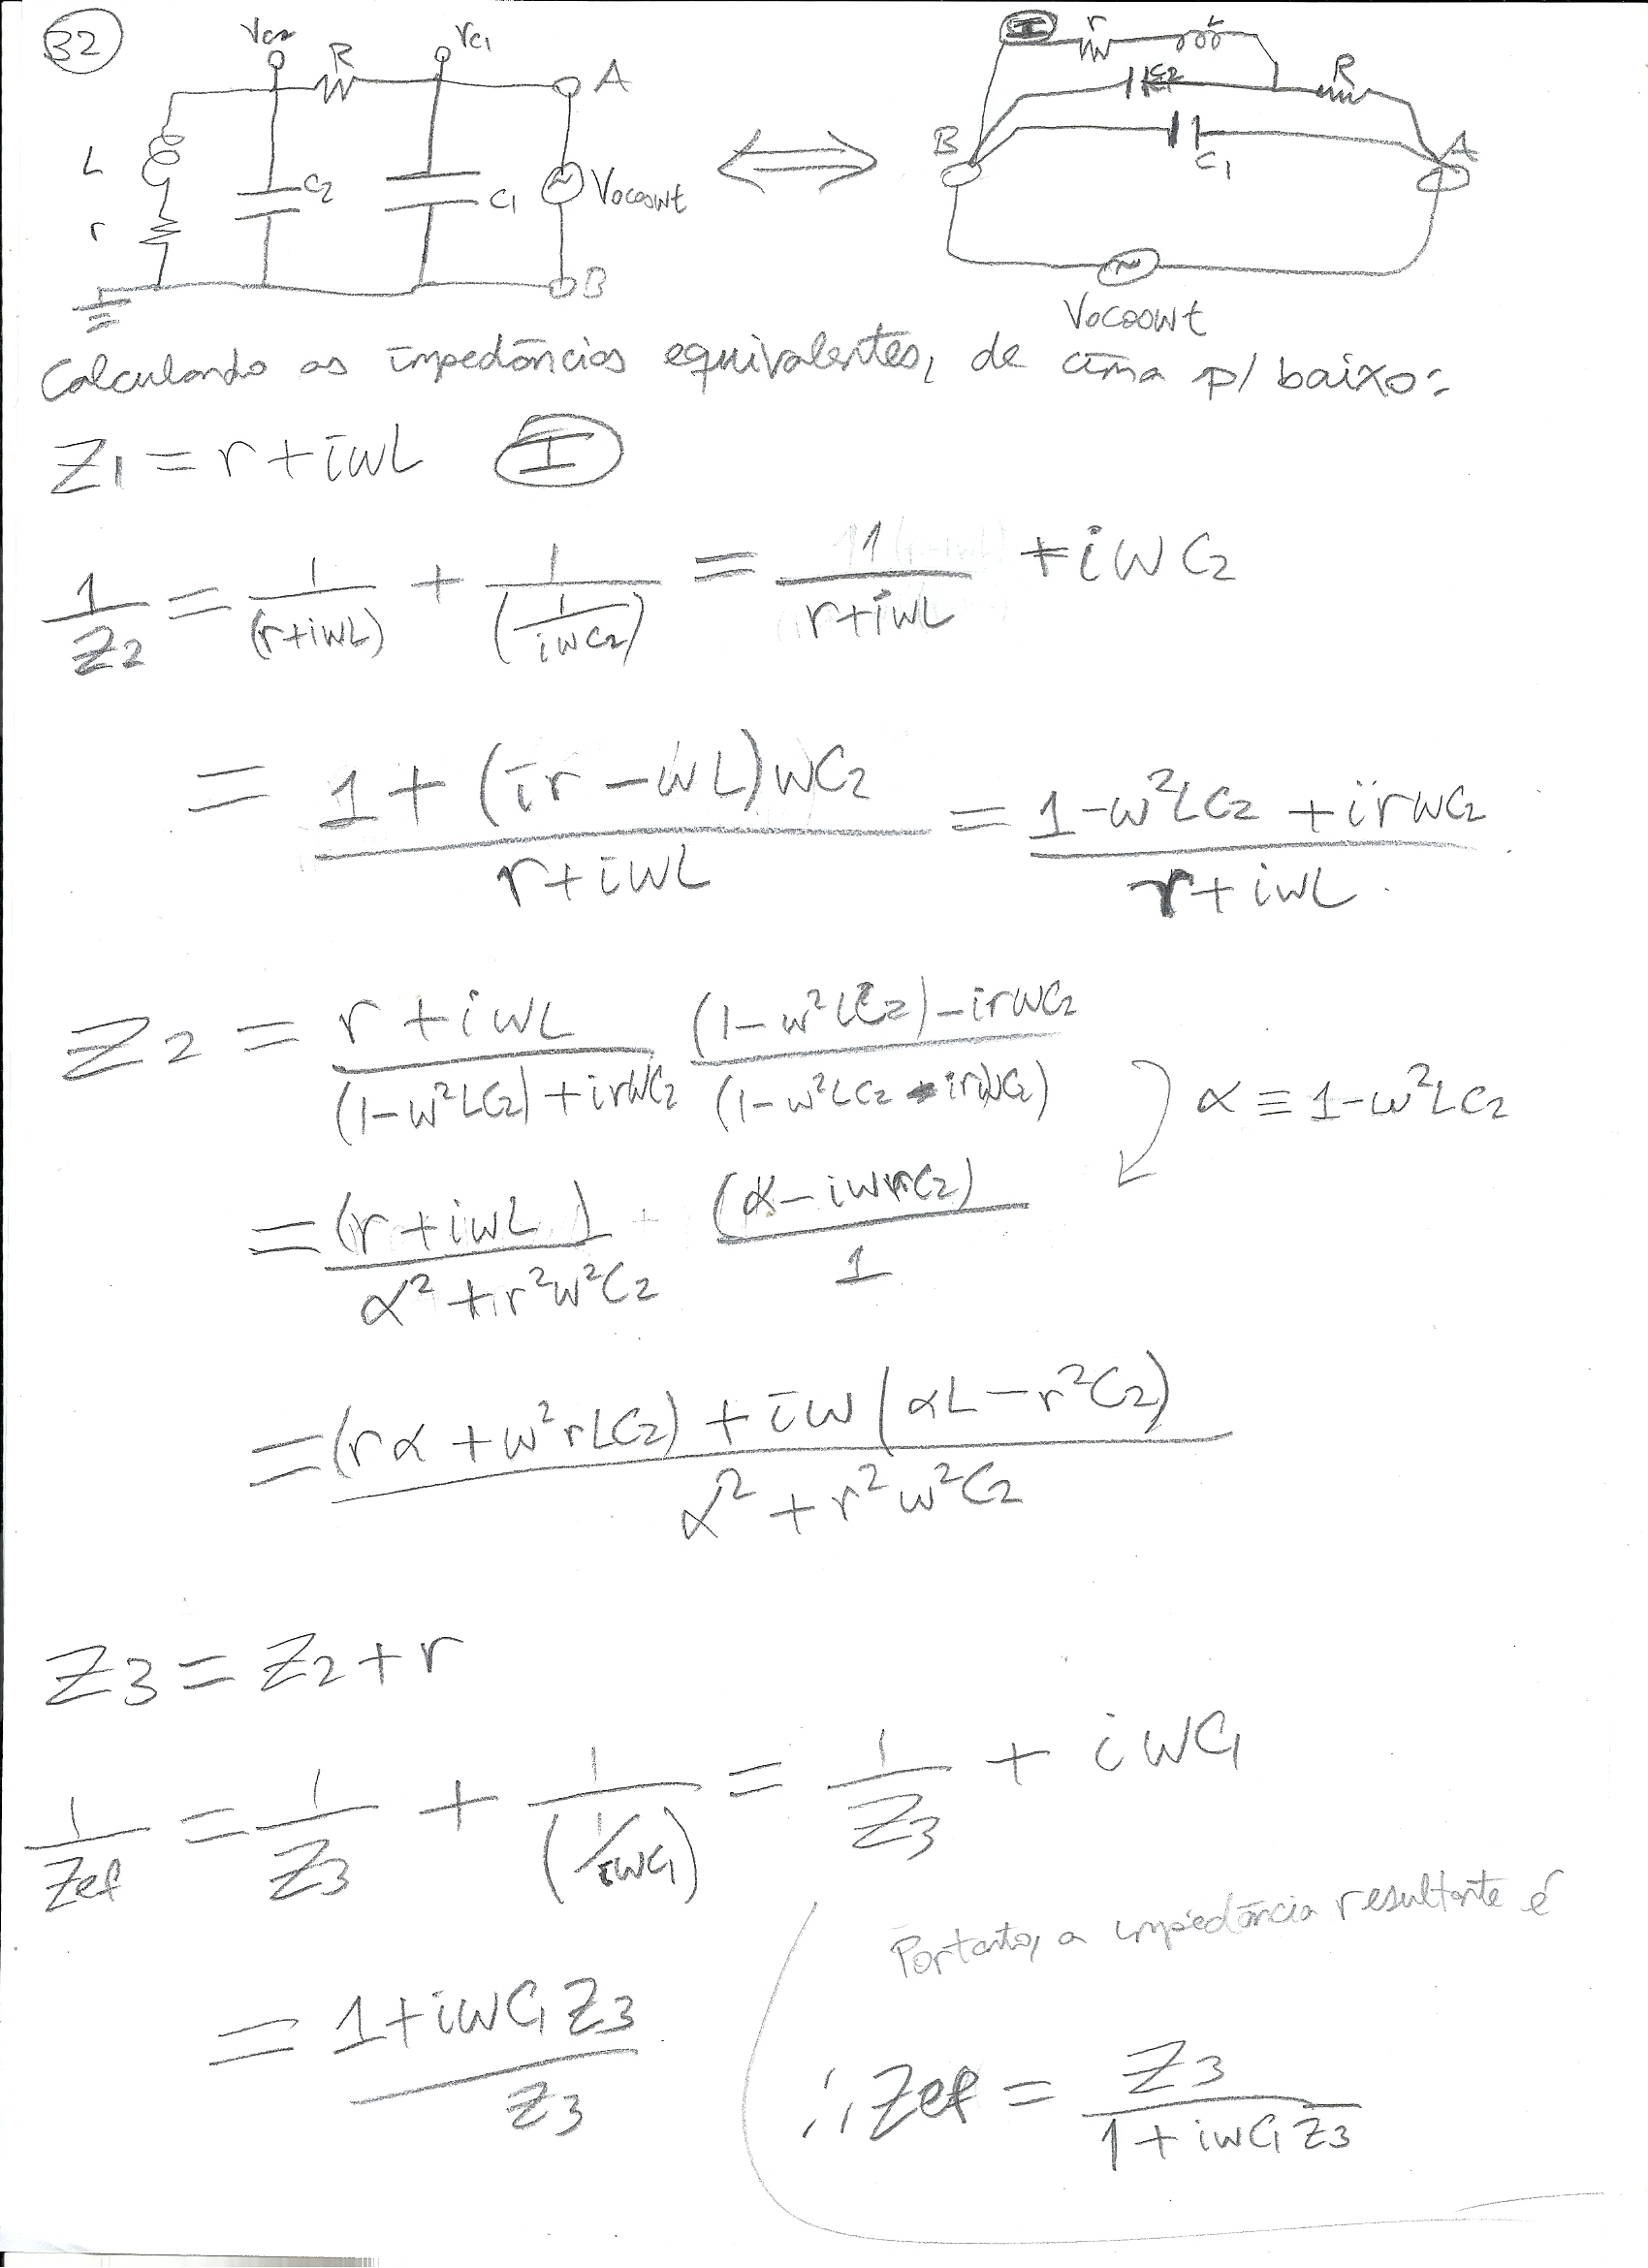 32
Vc2 R Vc1 A
L r C2 C1 V0coswt
B
I r L
C2 R
B C1 A
V0coswt
Calculando as impedâncias equivalentes, de cima p/ baixo:
Z1 = r + iwL I
1/Z2 = 1/(r+iwL) + 1/(1/iwC2) = 1/(r+iwL) + iwC2
= (1 + (ir - wL)wC2)/(r+iwL) = (1 - w²LC2 + irwC2)/(r+iwL)
Z2 = (r + iwL)/((1-w²LC2) + irwC2) ((1-w²LC2) - irwC2)/(1-w²LC2 - irwC2) α ≡ 1-w²LC2
= (r + iwL)/(α² + r²w²C2) · (α - iwrC2)/1
= ((rα + w²rLC2) + iw(αL - r²C2))/(α² + r²w²C2)
Z3 = Z2 + r
1/Zef = 1/Z3 + 1/(1/iwC1) = 1/Z3 + iwC1
= (1 + iwC1Z3)/Z3
Portanto, a impedância resultante é
∴ Zef = Z3/(1 + iwC1Z3)